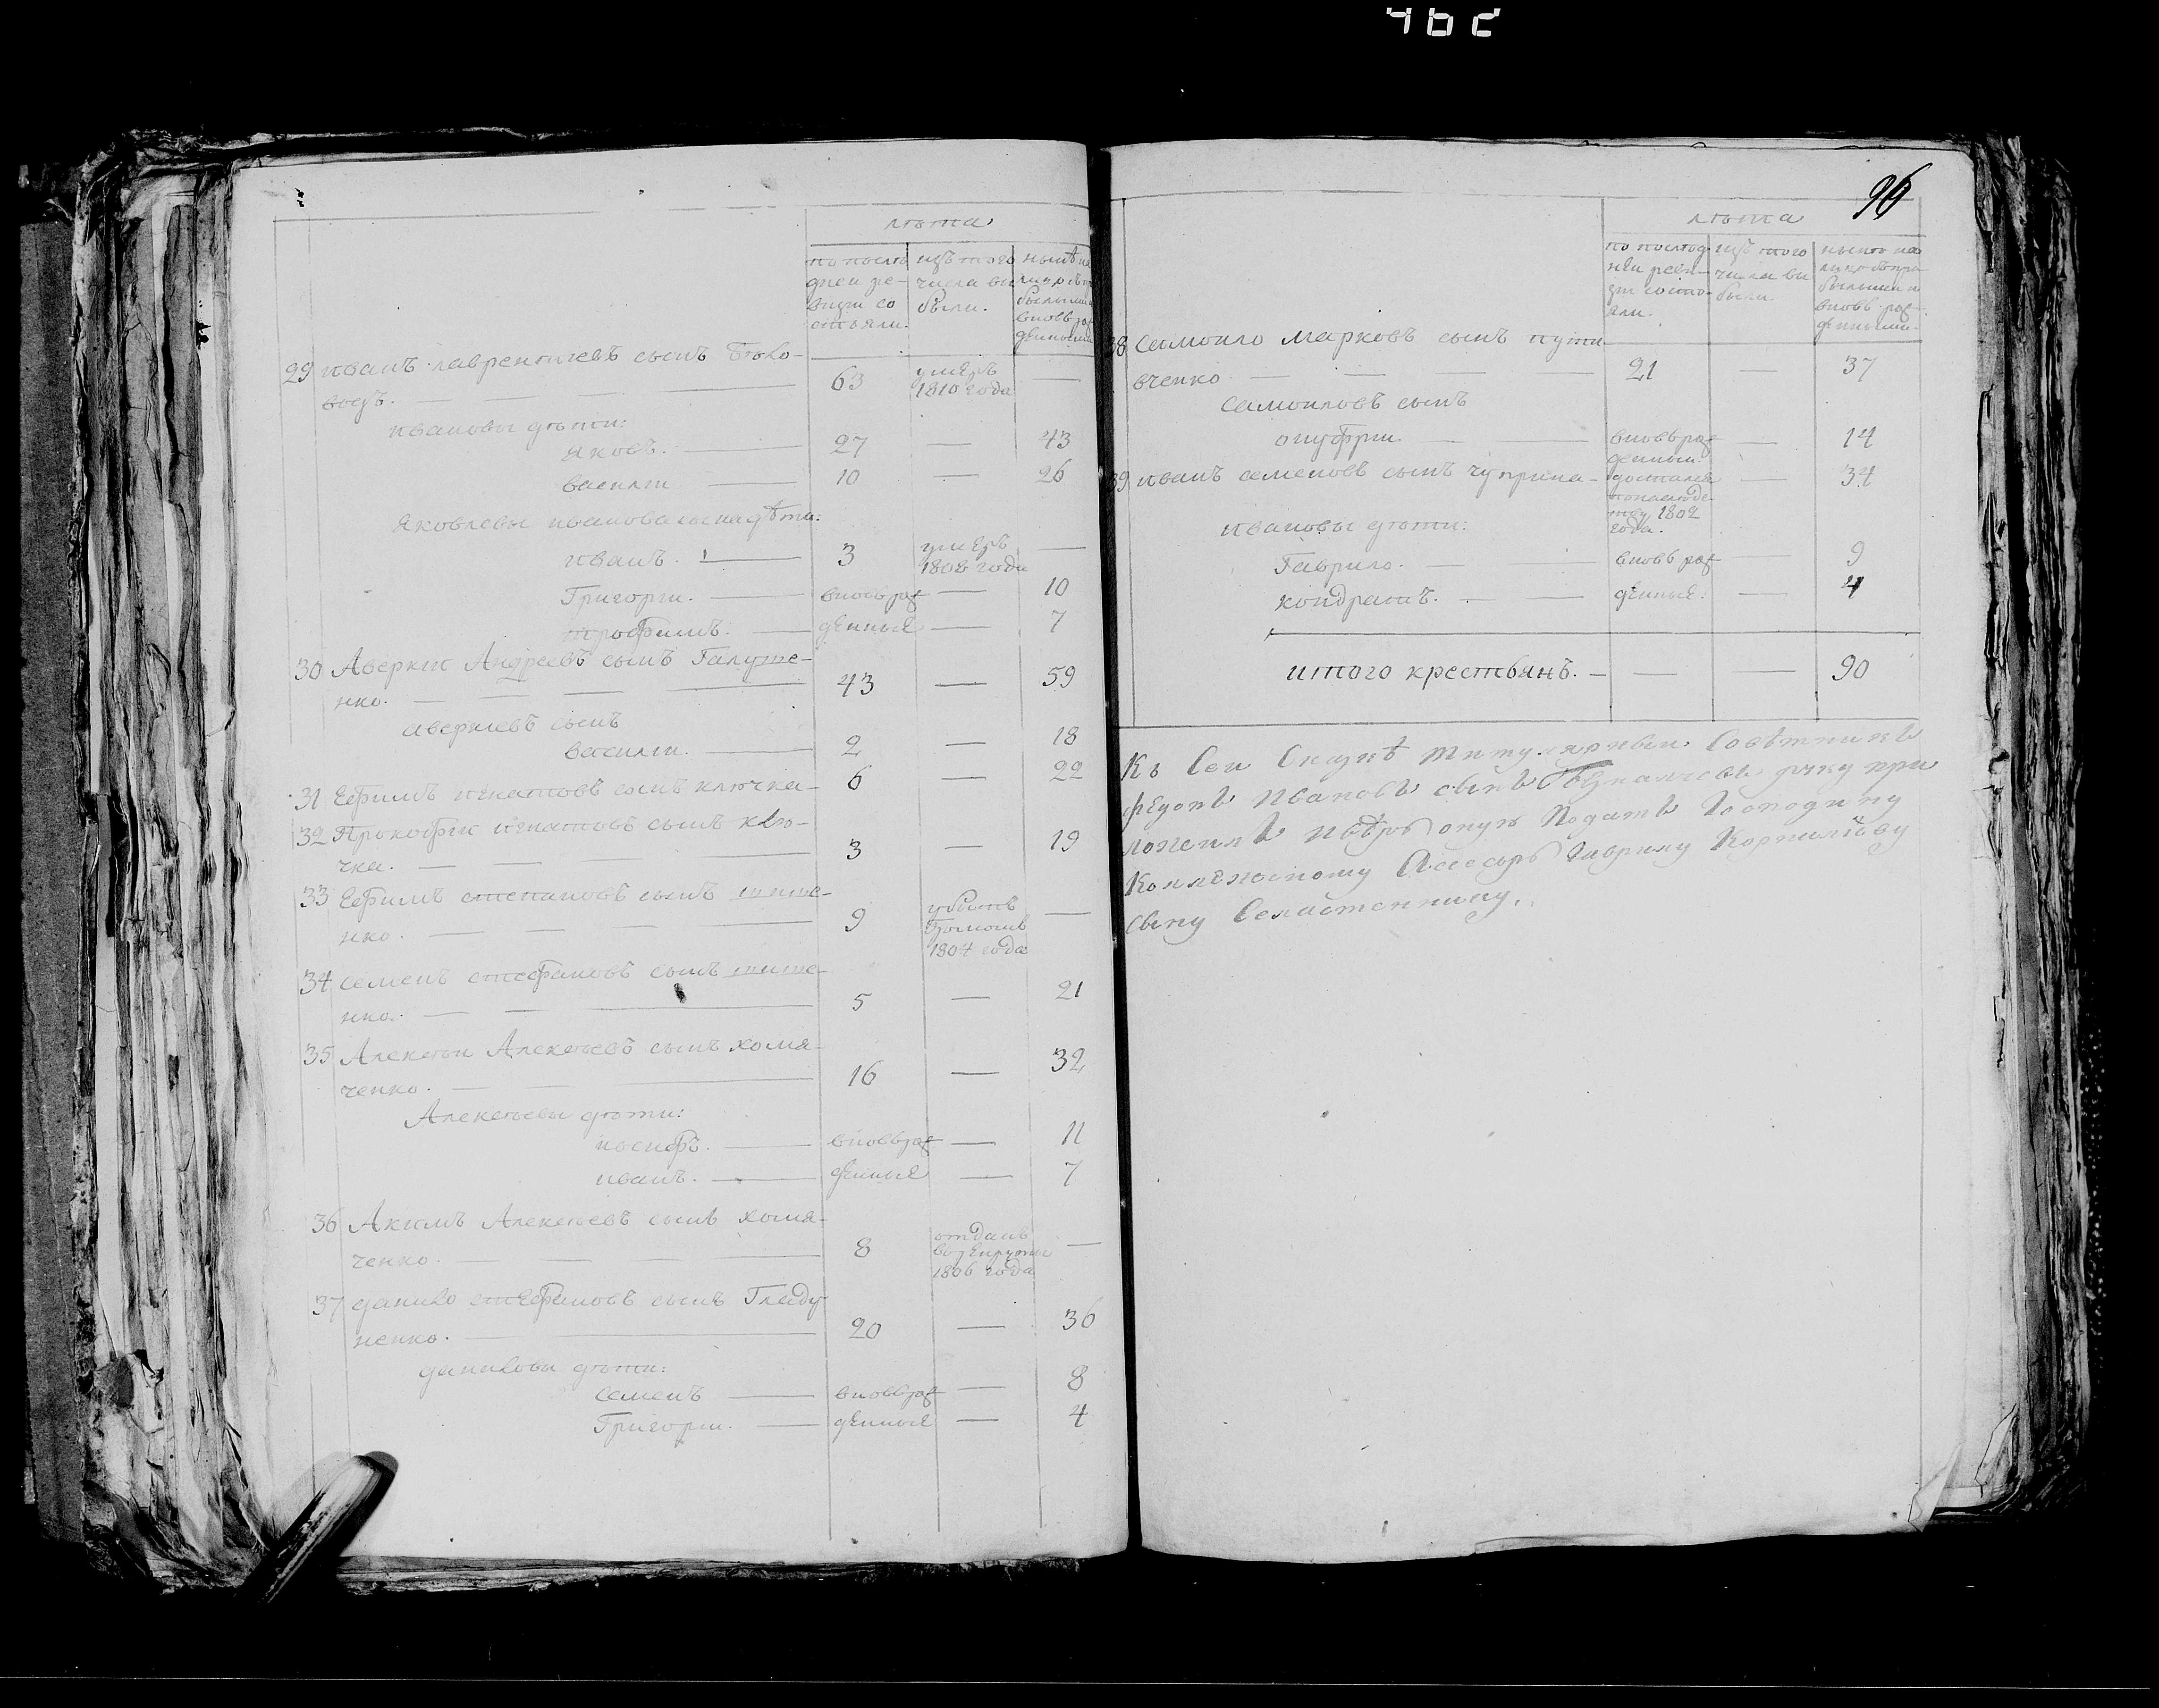 462
96
лѣта
по послѣ
дней ре-
визіи со
стояли.
изъ того
числа вы
были.
нынѣ на
лицо съ при
былыми и
вновь рож
денными
29 иванъ лаврентиевъ сынъ
63
умеръ
1810 года
—
ивановы дѣти:
яковъ. — 27 — 43
василии — 10 — 26
яковлевы ивановича сына дѣти:
иванъ. — 3 умеръ —
1808 года
Григории. — вновь рож — 10
трофимъ. — денные — 7
30 Аверкии Андреевъ сынъ Галуше-
нко. — 43 — 59
аверкиевъ сынъ
василии. — 2 — 18
31 Ефимъ игнатовъ сынъ ключка- 6 — 22
32 Прокофии игнатовъ сынъ клю-
чка. — 3 — 19
33 Ефимъ степановъ сынъ тите-
нко. — 9 —
1804 года
34 семенъ стефановъ сынъ тите-
нко. — 5 — 21
35 Алексѣи Алексѣевъ сынъ хома-
ченко. — 16 — 32
Алексѣевы дѣти:
иосифъ. — вновь рож — 11
иванъ. — денные — 7
36 Акимъ Алексѣевъ сынъ хома-
ченко. — 8 отданъ —
в рекруты
1806 года
37 данило стефановъ сынъ Гладу
ненко. — 20 — 36
даниловы дѣти:
семенъ — вновь рож — 8
Григории. — денные — 4
лѣта
по послѣд
неи реви-
зіи состо-
яли.
изъ того
числа вы
были
нынѣ на
лицо съ при
былыми и
вновь рож
денными.
38 самоило марковъ сынъ пути
вченко — 21 — 37
самоиловъ сынъ
онуфрии. — вновь рож — 14
денныи.
39 иванъ семеновъ сынъ чуприна- достался — 34
по наслѣдс-
тву 1802
года.
ивановы дѣти:
Гаврило. — вновь рож — 9
кондратъ. — денные. — 4
итого крестьянъ. — — — 90
Къ Сеи Сказкѣ титулярныи Совѣтникъ
федоръ Ивановъ сынъ руку при
ложилъ Подать Господину
Коллежскому Асесоръ Гаврилу Корнилиеву
сыну